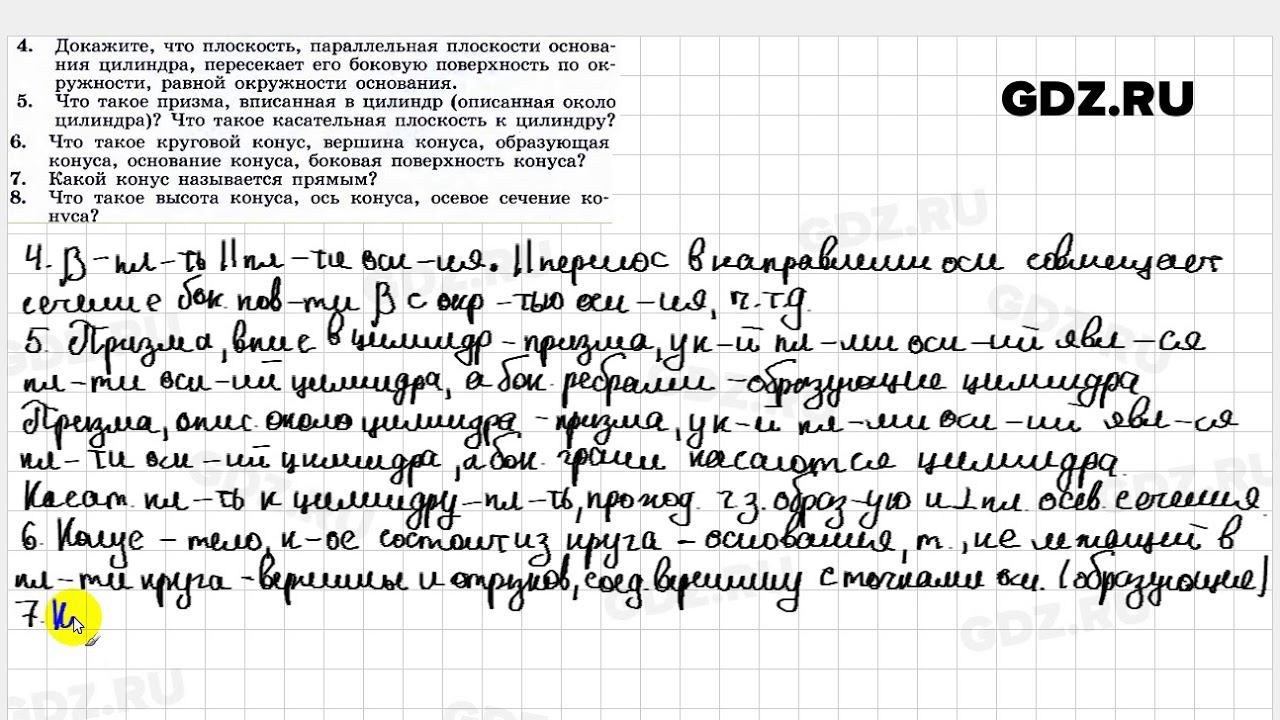 4. Докажите, что плоскость, параллельная плоскости основа-
ния цилиндра, пересекает его боковую поверхность по ок-
ружности, равной окружности основания.
5. Что такое призма, вписанная в цилиндр (описанная около
цилиндра)? Что такое касательная плоскость к цилиндру?
6. Что такое круговой конус, вершина конуса, образующая
конуса, основание конуса, боковая поверхность конуса?
7. Какой конус называется прямым?
8. Что такое высота конуса, ось конуса, осевое сечение ко-
нуса?
GDZ.RU
4. β - пл-ть || пл-ти осн-ия. || перенос в направлении оси совмещает
сечение бок. пов-ти β с окр-тью осн-ия, ч.т.д.
5. Призма, впис в цилиндр - призма, у к-й пл-ми осн-ий явл-ся
пл-ти осн-ий цилиндра, а бок. ребрами - образующие цилиндра
Призма, опис. около цилиндра - призма, у к-й пл-ми осн-ий явл-ся
пл-ти осн-ий цилиндра, а бок. грани касаются цилиндра.
Касат. пл-ть к цилиндру - пл-ть, проход. чз. образ-ую и ⊥ пл. осев. сечения
6. Конус - тело, к-ое состоит из круга - основания, т., не лежащей в
пл-ти круга - вершины и отрезков, соед. вершину с точками осн. (образующие)
7. К